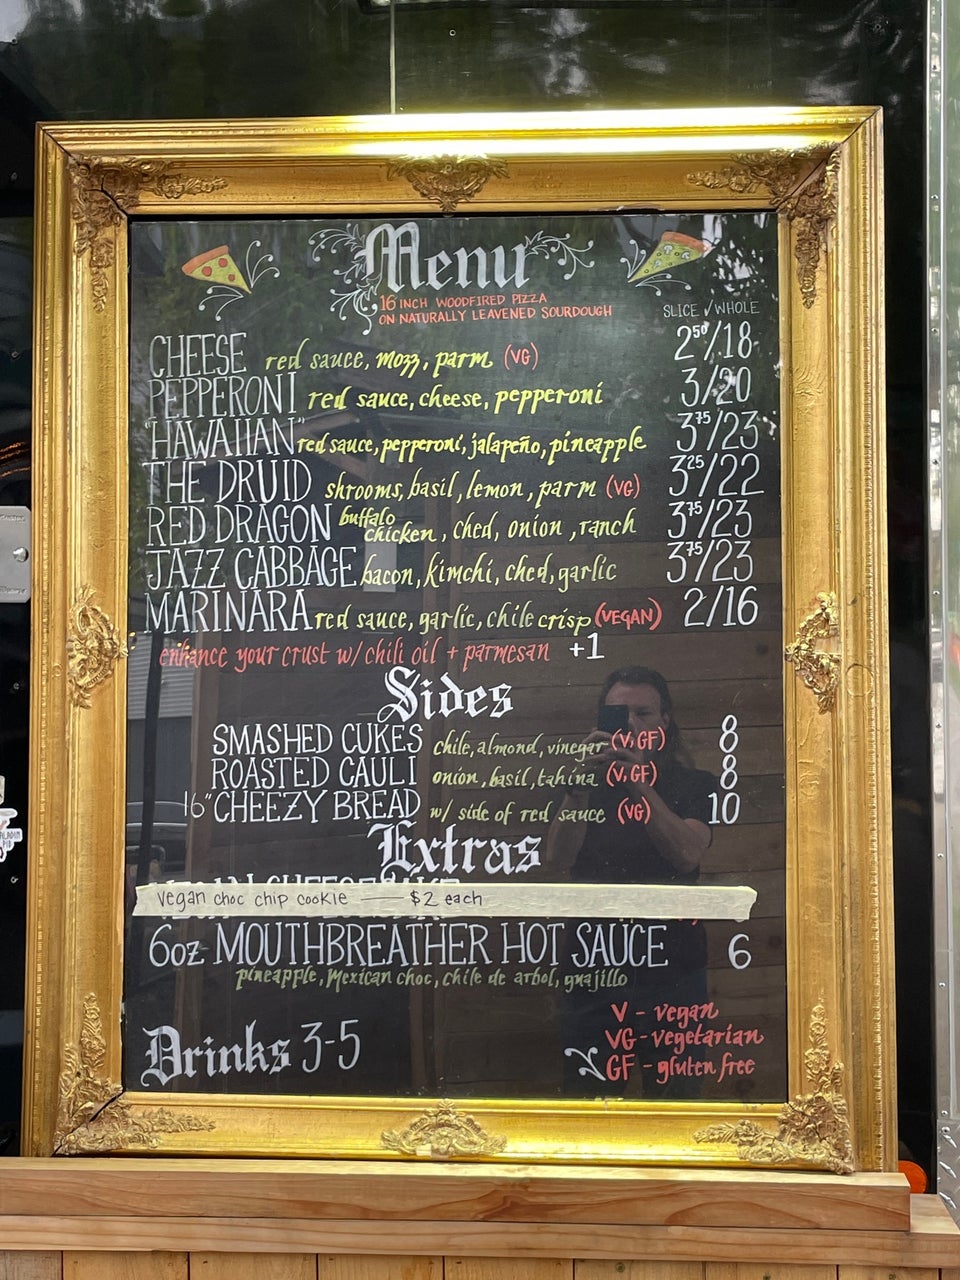 Menu
16 INCH WOODFIRED PIZZA
ON NATURALLY LEAVENED SOURDOUGH
SLICE / WHOLE
CHEESE red sauce, mozz, parm (VG) 2⁵⁰/18
PEPPERONI red sauce, cheese, pepperoni 3/20
"HAWAIIAN" red sauce, pepperoni, jalapeño, pineapple 3⁷⁵/23
THE DRUID shrooms, basil, lemon, parm (VG) 3²⁵/22
RED DRAGON buffalo chicken, ched, onion, ranch 3⁷⁵/23
JAZZ CABBAGE bacon, kimchi, ched, garlic 3⁷⁵/23
MARINARA red sauce, garlic, chile crisp (VEGAN) 2/16
enhance your crust w/ chili oil + parmesan +1
Sides
SMASHED CUKES chile, almond, vinegar (V, GF) 8
ROASTED CAULI onion, basil, tahina (V, GF) 8
16" CHEEZY BREAD w/ side of red sauce (VG) 10
Extras
vegan choc chip cookie — $2 each
6oz MOUTHBREATHER HOT SAUCE 6
pineapple, Mexican choc, chile de arbol, guajillo
Drinks 3-5
V - vegan
VG - vegetarian
GF - gluten free